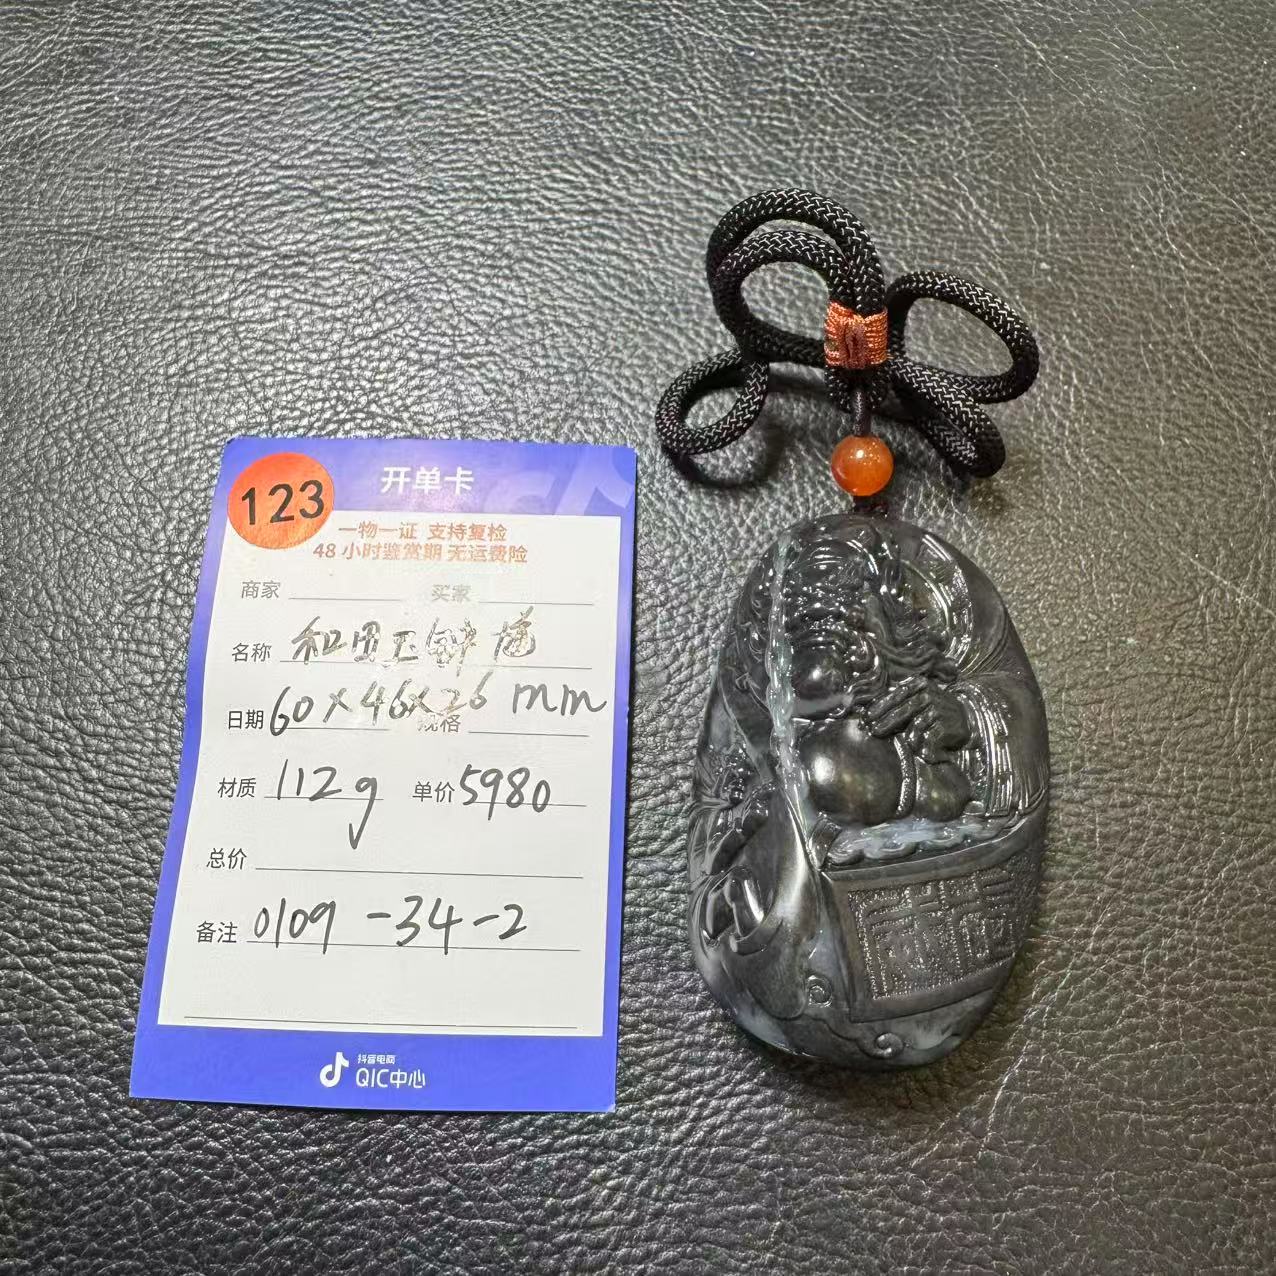 123
开单卡
一物一证 支持复检
48 小时鉴赏期 无运费险
商家 买家
名称 和田玉钟馗
日期 60×46×26 mm 规格
材质 112g 单价 5980
总价
备注 0109-34-2
抖音电商
QIC中心